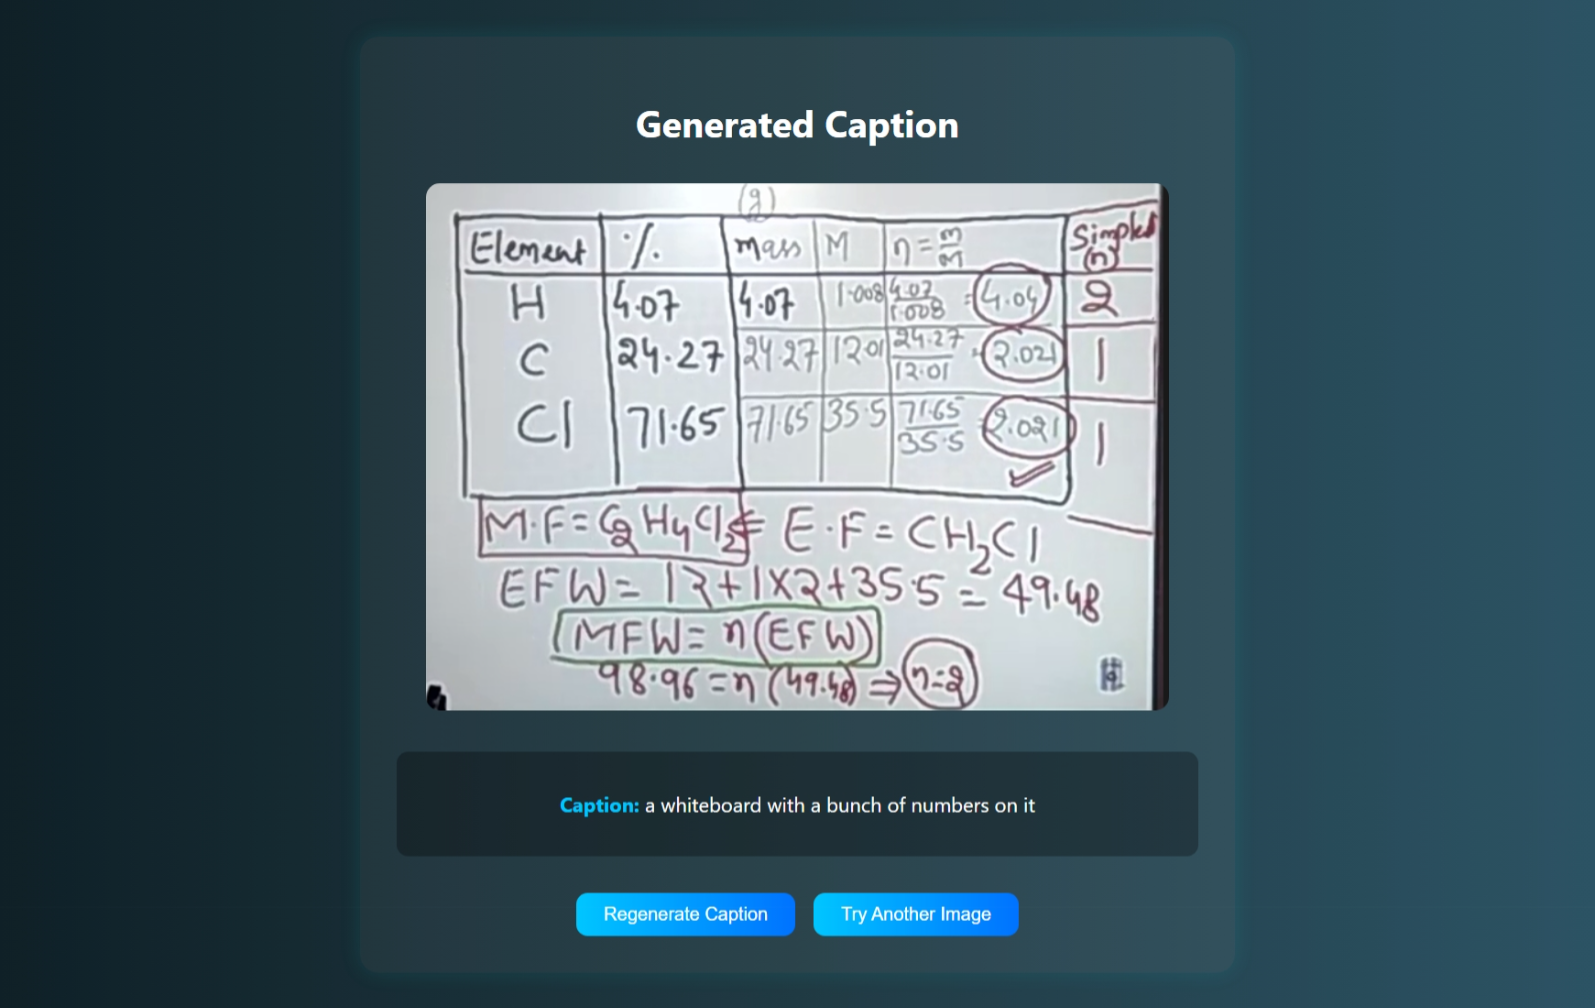 Generated Caption
(g)
Element % mass M n = m/M Simplest (n)
H 4.07 4.07 1.008 4.07/1.008 = 4.04 2
C 24.27 24.27 12.01 24.27/12.01 = 2.021 1
Cl 71.65 71.65 35.5 71.65/35.5 = 2.021 1
M.F = C2H4Cl2 ⇐ E.F = CH2Cl
EFW = 12+1x2+35.5 = 49.48
MFW = n(EFW)
98.96 = n(49.48) ⇒ n=2
Caption: a whiteboard with a bunch of numbers on it
Regenerate Caption
Try Another Image